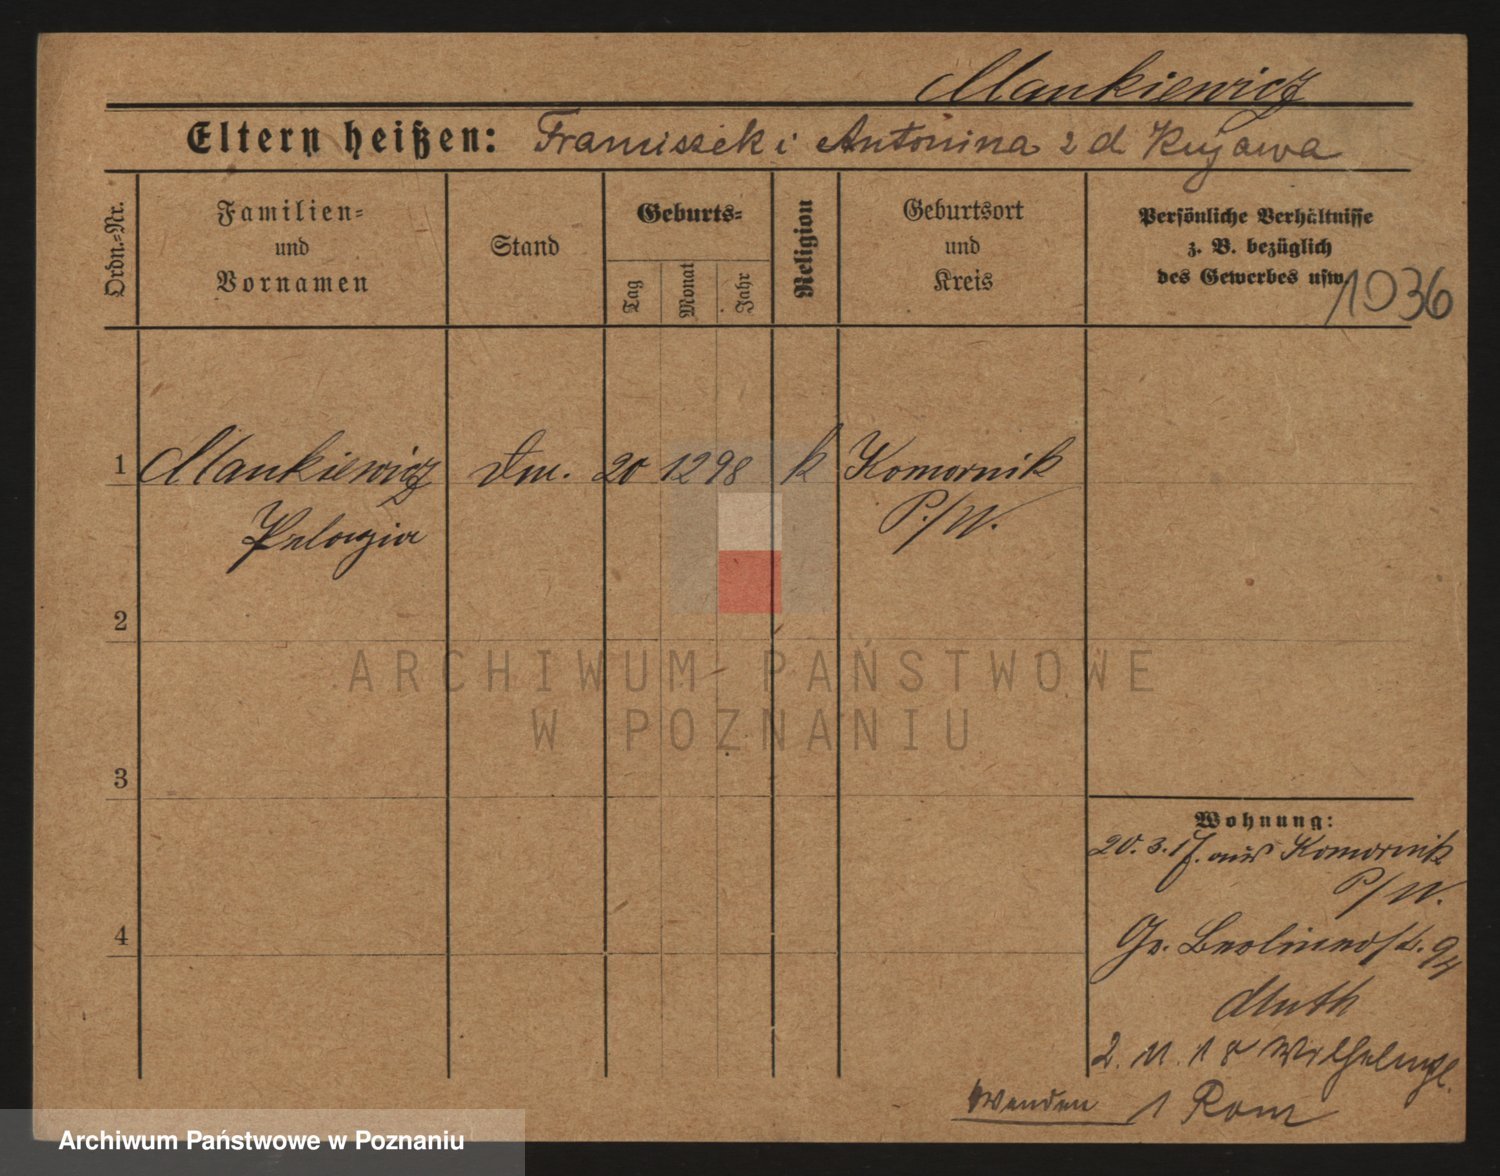 Mankiewicz
Eltern heißen: Franciszek i Antonina z d Kujawa
Ordn.-Nr.
Familien-
und
Vornamen
Stand
Geburts-
Tag
Monat
Jahr
Religion
Geburtsort
und
Kreis
Persönliche Verhältnisse
z. B. bezüglich
des Gewerbes usw.
1036
1 Mankiewicz 20 12 98 k Komornik
Pelagia P./W.
2
3
4
Wohnung:
20. 3. 17. aus Komornik
P/W.
Gr. Berlinerst. 94
Muth
2. 11. 18 Wilhelmpl.
1 Rom
Wenden
ARCHIWUM PAŃSTWOWE
W POZNANIU
Archiwum Państwowe w Poznaniu